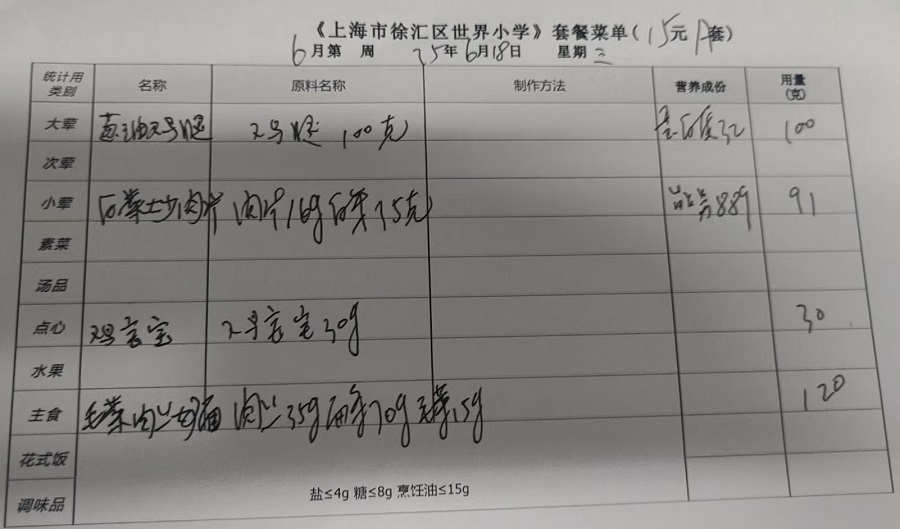 《上海市徐汇区世界小学》套餐菜单(15元A套)
6月第 周 25年6月18日 星期三
统计用类别 名称 原料名称 制作方法 营养成份 用量(克)
大荤 葱油鸡腿 鸡腿 100克 蛋白质32 100
次荤
小荤 白菜炒肉片 肉片16g白菜75克 889 91
素菜
汤品
点心 鸡宝宝 鸡宝宝30g 30
水果
主食 肉丝 肉丝35g 70g 15g 120
花式饭
调味品 盐≤4g 糖≤8g 烹饪油≤15g